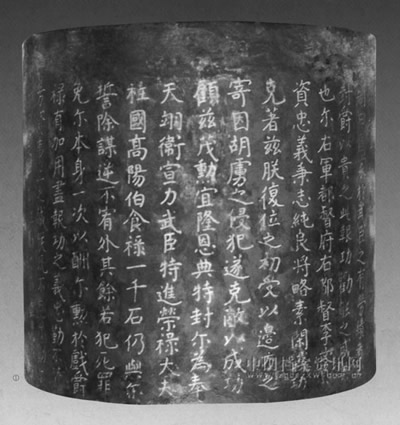 封爵以貴之此報功勸
也尔右軍都督府右都督李
資忠義秉志純良將略素閑
克著茲朕復位之初受以邊之
寄因胡虜之侵犯遂克敵以成功
顧茲戊勲宜隆恩典特封尔為奉
天翊衛宣力武臣特進榮祿大夫
柱國高陽伯食祿一千石仍與尔
誓除謀逆不宥外其餘若犯死罪
免尔本身一次以酬尔勲於戲爵
祿有加用盡報功之義忠勤